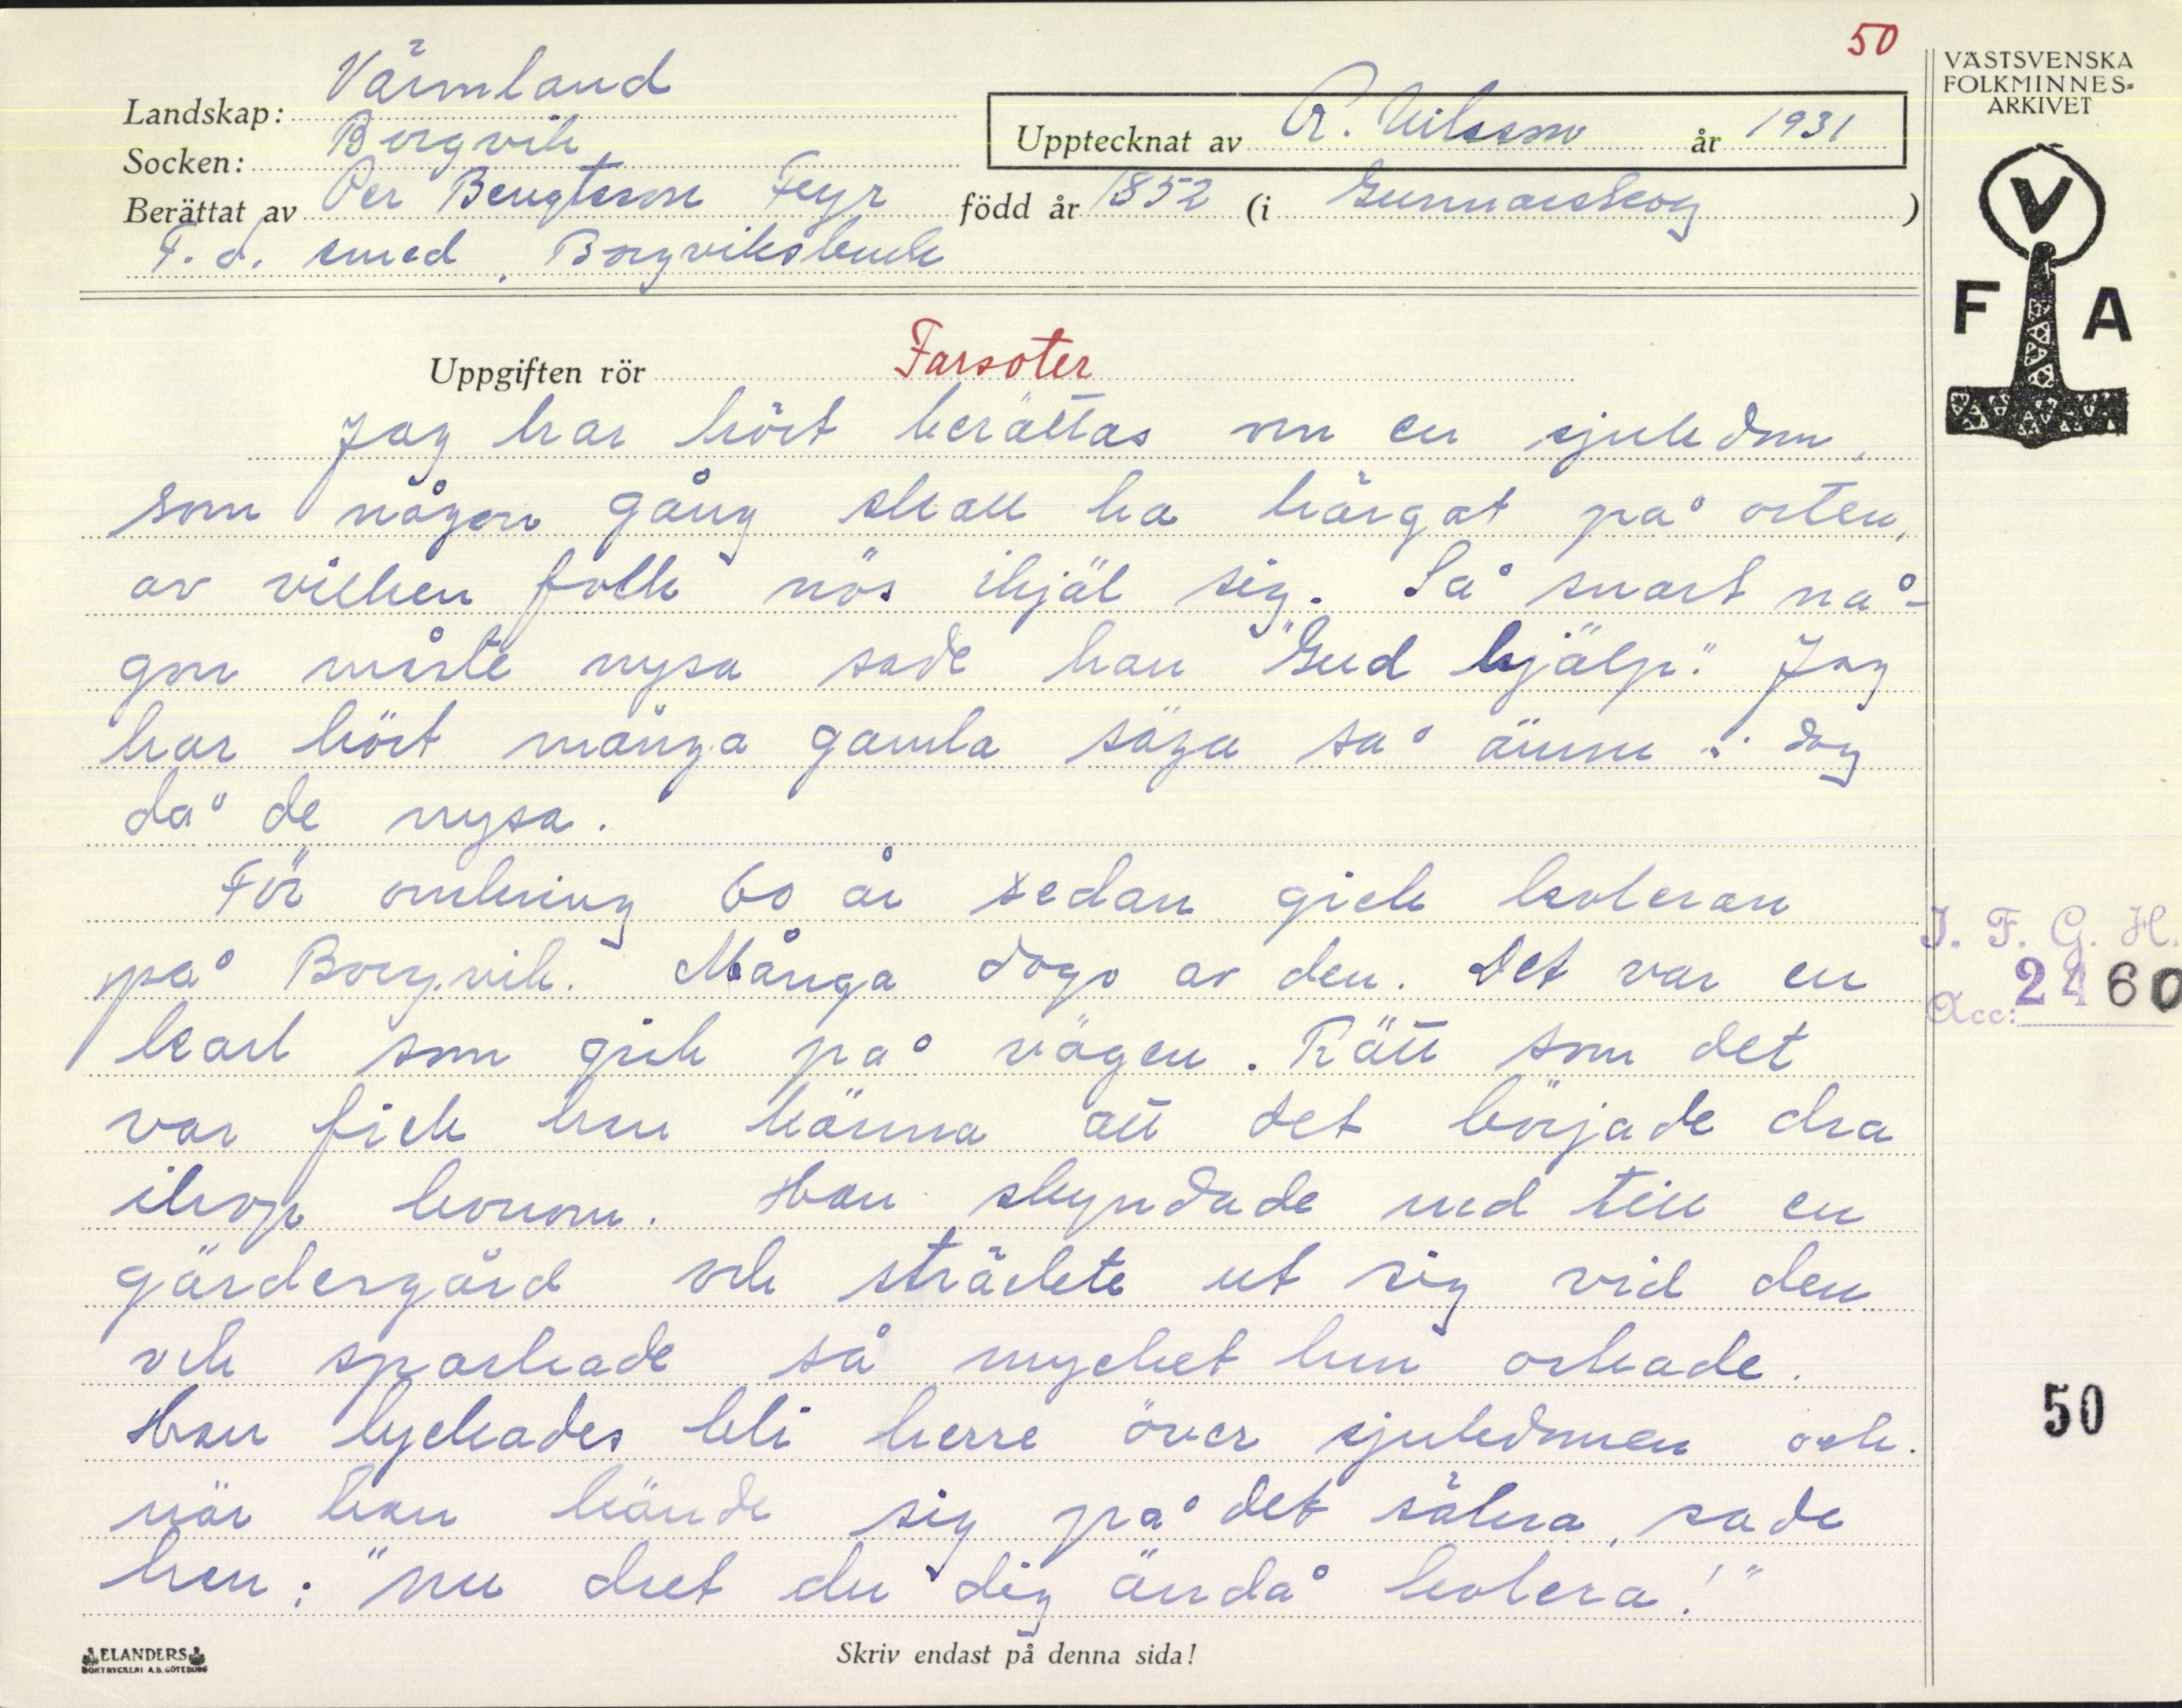 50
VÄSTSVENSKA
FOLKMINNES-
ARKIVET
Landskap: Värmland
Socken: Borgvik
Upptecknat av R. Nilsson år 1931
Berättat av Per Bengtsson Fyr född år 1852 (i Gunnarskog)
F. d. smed, Borgviksbruk
V
F A
Uppgiften rör Farsoter
Jag har hört berättas om en sjukdom,
som någon gång skall ha härgat på orten,
av vilken folk nös ihjäl sig. Så snart nå-
gon måste nysa sade han "Gud hjälp". Jag
har hört många gamla säga så ännu i dag
då de nysa.
För omkring 60 år sedan gick koleran
på Borgvik. Många dogo av den. Det var en
karl som gick på vägen. Rätt som det
var fick han känna att det började dra
ihop honom. Han skyndade ned till en
gärdesgård och sträckte ut sig vid den
och sparkade så mycket han orkade.
Han lyckades bli herre över sjukdomen och
när han kände sig på det säkra, sade
han: "nu dret du dig ändå kolera!"
I. F. G. H.
Acc: 2460
50
ELANDERS
BOKTRYCKERI A.B. GÖTEBORG
Skriv endast på denna sida!